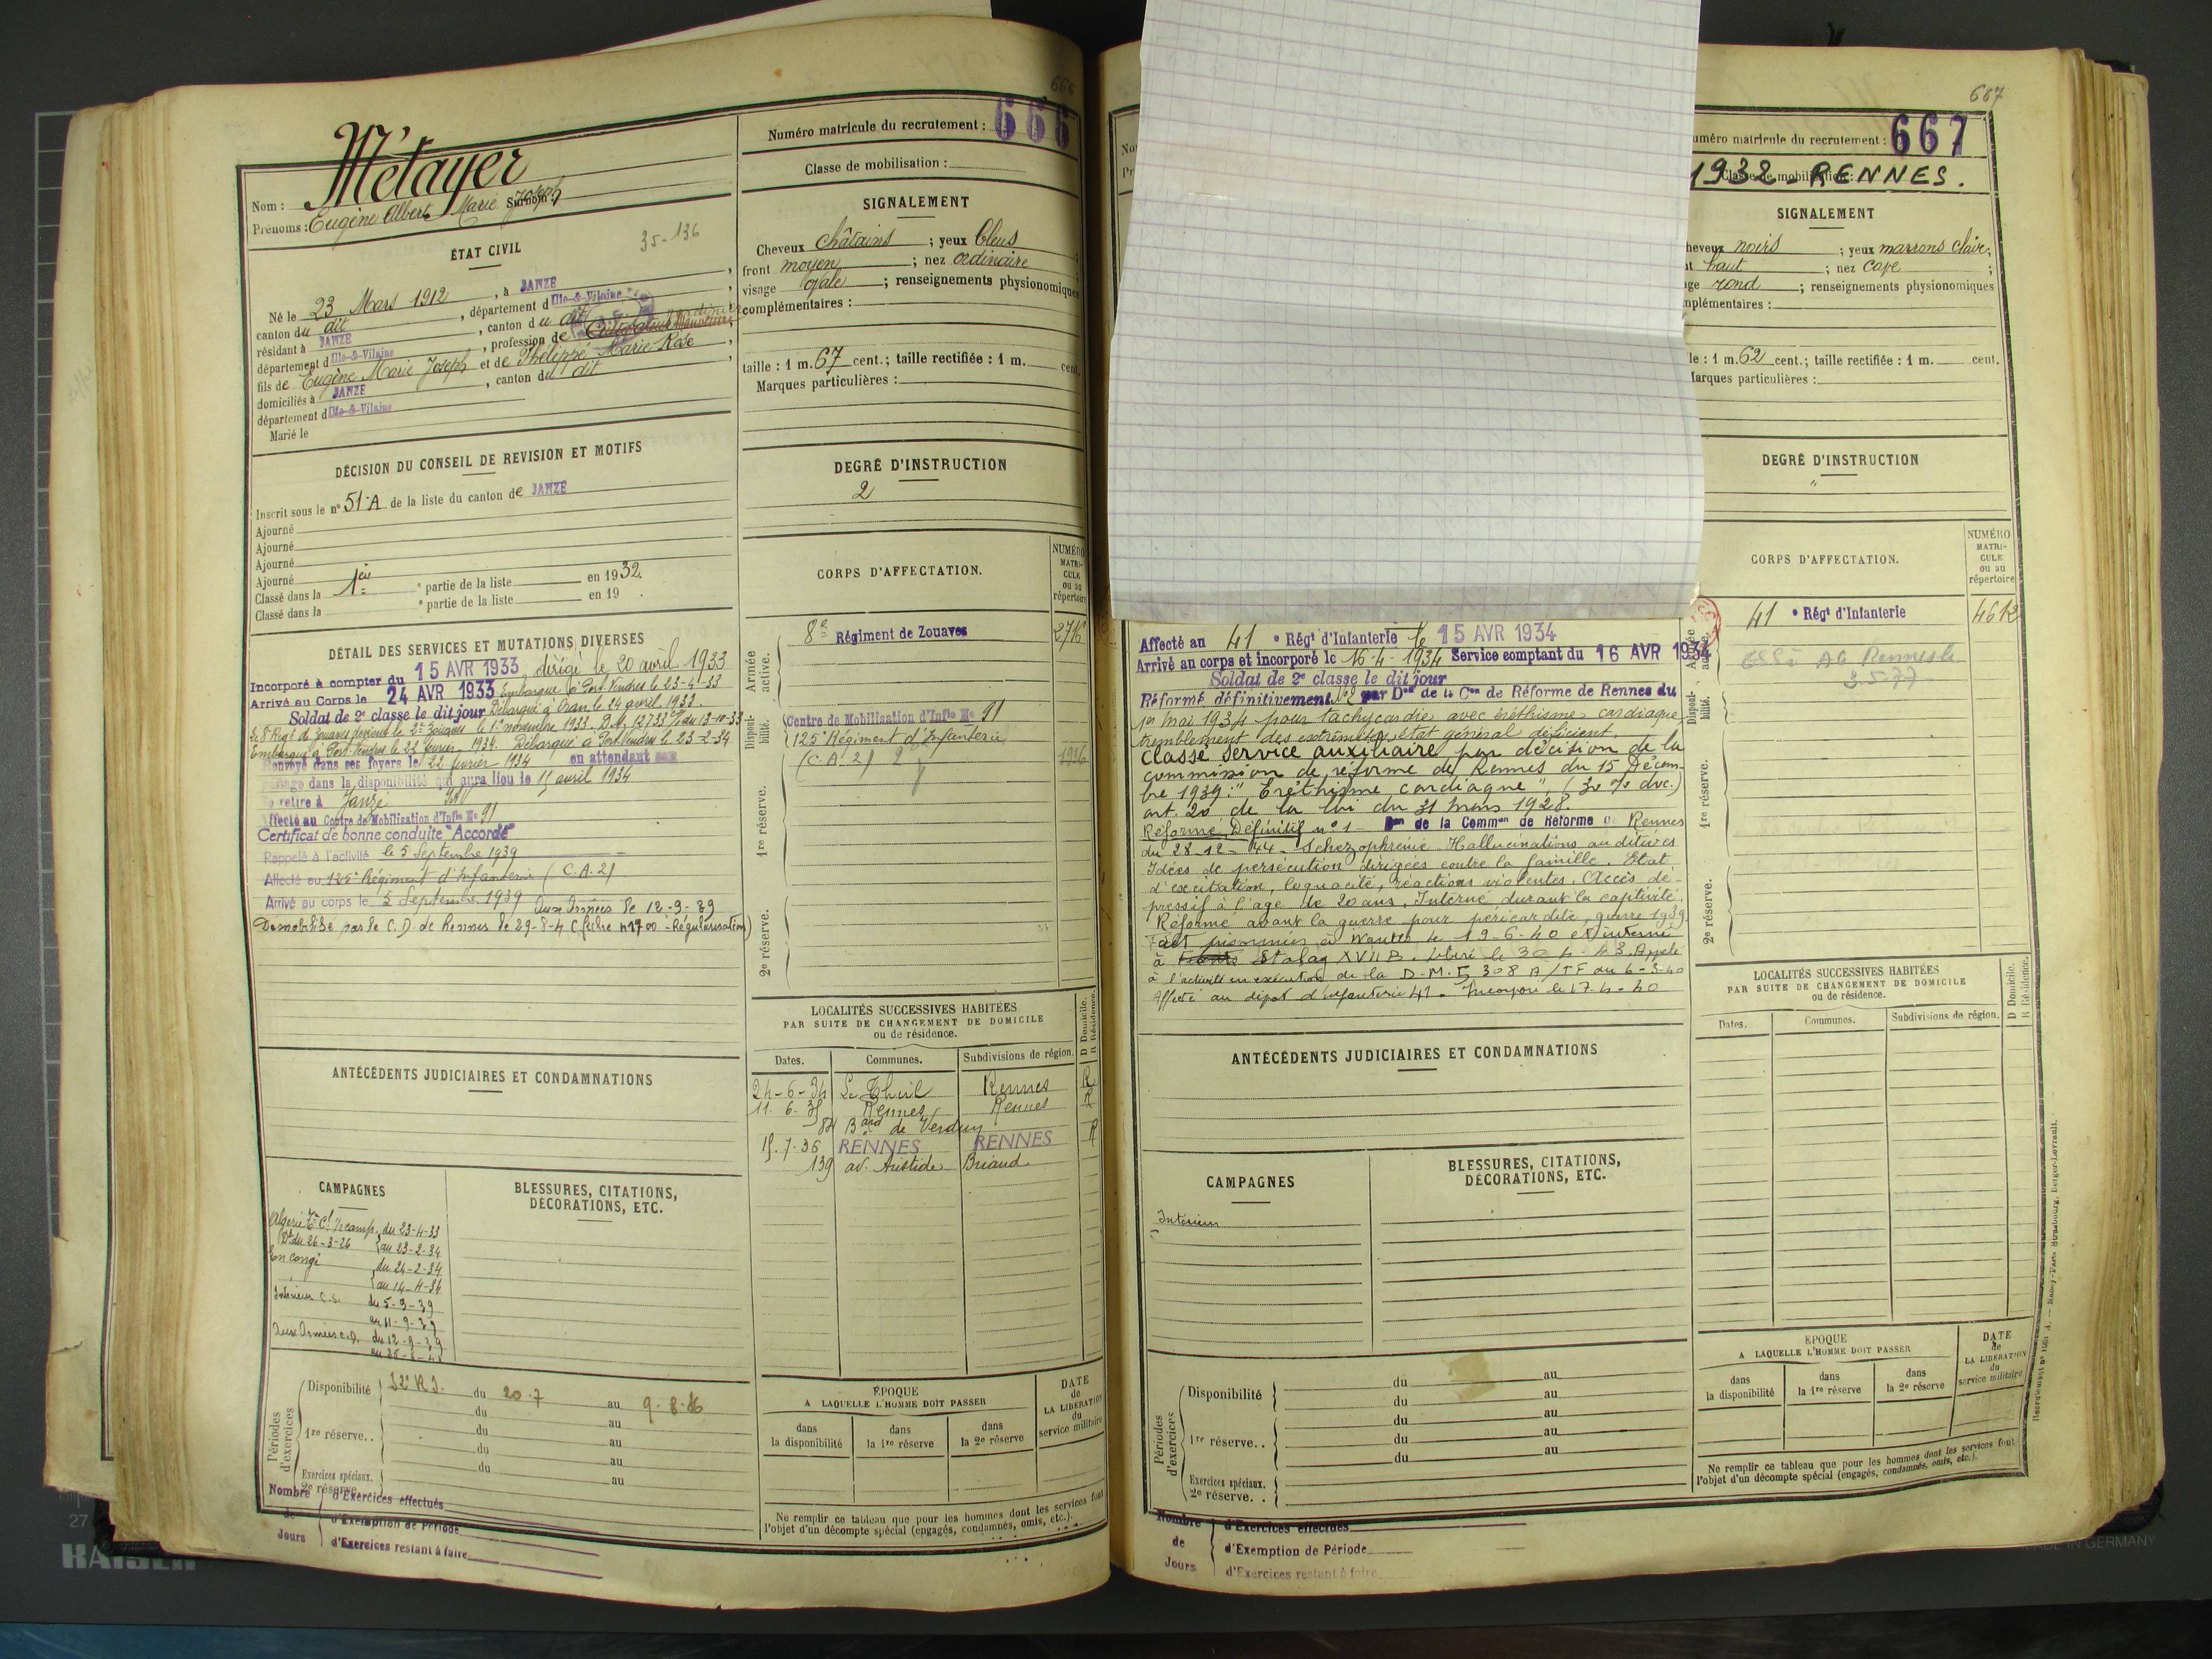 666
Numéro matricule du recrutement : 666
Classe de mobilisation :
Nom : Métayer
Prénoms : Eugène Albert Marie Joseph Surnom :
ÉTAT CIVIL
35-136
Né le 23 Mars 1912, à JANZÉ
canton du dit, département d Ille-&-Vilaine
résidant à JANZÉ, canton du dit
département d Ille-&-Vilaine, profession de
fils de Eugène Marie Joseph et de Thélippé Marie Rose
domiciliés à JANZÉ, canton du dit
département d Ille-&-Vilaine
Marié le
DÉCISION DU CONSEIL DE REVISION ET MOTIFS
Inscrit sous le n° 51-A de la liste du canton de JANZÉ
Ajourné
Ajourné
Ajourné
Ajourné
Classé dans la 1ère partie de la liste en 1932.
Classé dans la ° partie de la liste en 19 .
DÉTAIL DES SERVICES ET MUTATIONS DIVERSES
Incorporé à compter du 15 AVR 1933, dirigé le 20 avril 1933
Arrivé au Corps le 24 AVR 1933 Embarqué à Port-Vendres le 23-4-33
Soldat de 2e classe le dit jour Débarqué à Oran le 24 avril 1933.
Le 8e Régt de Zouaves devient le 2e Zouaves le 1er novembre 1933. D.M. 12733 du 13-10-33
Embarqué à Port-Vendres le 22 février 1934. Débarqué à Port-Vendres le 23-2-34
Renvoyé dans ses foyers le 22 février 1934 en attendant son
passage dans la disponibilité qui aura lieu le 15 avril 1934
Se retire à Janzé
Affecté au Centre de Mobilisation d'Inf№ 91
Certificat de bonne conduite "Accordé"
Rappelé à l'activité le 5 Septembre 1939
Affecté au 125e Régiment d'Infanterie (C.A.2)
Arrivé au corps le 5 Septembre 1939 Aux Armées le 12-9-39
Démobilisé par le C.D. de Rennes le 29-8-4 (fiche n° 1700 - Régularisation)
ANTÉCÉDENTS JUDICIAIRES ET CONDAMNATIONS
CAMPAGNES
Algérie du 23-4-33
Dt du 26-3-26 au 23-2-34
En congé du 24-2-34
au 14-4-34
Intérieur C.S. du 5-9-39
au 11-9-39
Aux Armées C.D. du 12-9-39
BLESSURES, CITATIONS,
DÉCORATIONS, ETC.
Périodes d'exercices
Disponibilité du 20-7 au 9-8-36
du au
1re réserve.. du au
du au
du au
Exercices spéciaux.
2e réserve.
Nombre de Jours
d'Exercices effectués
d'Exemption de Période
d'Exercices restant à faire
SIGNALEMENT
Cheveux châtains ; yeux bleus
front moyen ; nez ordinaire
visage ovale ; renseignements physionomiques
complémentaires :
taille : 1 m. 67 cent.; taille rectifiée : 1 m. cent.
Marques particulières :
DEGRÉ D'INSTRUCTION
2
CORPS D'AFFECTATION.
NUMÉRO
MATRI-
CULE
ou au
répertoire
Armée active.
8e Régiment de Zouaves 2716
Disponibilité.
Centre de Mobilisation d'Inf№ 91
125e Régiment d'Infanterie
(C.A.2) 1936
1re réserve.
2e réserve.
LOCALITÉS SUCCESSIVES HABITÉES
PAR SUITE DE CHANGEMENT DE DOMICILE
ou de résidence.
D Domicile.
R Résidence.
Dates. Communes. Subdivisions de région.
24-6-34 Le Theil Rennes R
11-6-35 Rennes Rennes R
84 Bard de Verdun
15-7-36 RENNES RENNES R
139 av. Aristide Briand
ÉPOQUE
A LAQUELLE L'HOMME DOIT PASSER
dans la disponibilité
dans la 1re réserve
dans la 2e réserve
DATE
de
LA LIBÉRATION
du
service militaire
Ne remplir ce tableau que pour les hommes dont les services font
l'objet d'un décompte spécial (engagés, condamnés, omis, etc.).
667
uméro matricule du recrutement : 667
Classe de mobilisation :
1932 - RENNES.
SIGNALEMENT
heveux noirs ; yeux marrons clair ;
haut ; nez cave ;
rond ; renseignements physionomiques
mplémentaires :
le : 1 m. 62 cent.; taille rectifiée : 1 m. cent.
arques particulières :
DEGRÉ D'INSTRUCTION
"
CORPS D'AFFECTATION.
NUMÉRO
MATRI-
CULE
ou au
répertoire
41e Régt d'Infanterie 4612
3577
Affecté au 41e Régt d'Infanterie le 15 AVR 1934
Arrivé au corps et incorporé le 16-4-1934 Service comptant du 16 AVR 1934
Soldat de 2e classe le dit jour
Réformé définitivement N°2 par Don de la Con de Réforme de Rennes du
1er mai 1934 pour tachycardie avec éréthisme cardiaque
tremblement des extrémités, état général déficient.
Classé Service auxiliaire par décision de la
commission de réforme de Rennes du 15 Décem-
bre 1939 : "Eréthisme cardiaque"
art. 20 de la loi du 31 mars 1928.
Réforme Définitif n°1 - Don de la Common de Réforme de Rennes
du 28-12-44 - Schezophrénie Hallucinations auditives
Idées de persécution dirigées contre la famille. Etat
d'excitation, loquacité, réactions violentes. Accès dé-
pressif à l'age de 20 ans. Interné durant la captivité.
Réformé avant la guerre pour péricardite, guerre 1939
Fait prisonnier à Nantes le 19-6-40 et interné
à Stalag XVII B. Libéré le 30-4-43. Appelé
à l'activité en exécution de la D.M. 5308 A/TF du 6-3-40
Affecté au dépôt d'infanterie 41. Incorporé le 17-4-40
Armée active.
Disponibilité.
1re réserve.
2e réserve.
ANTÉCÉDENTS JUDICIAIRES ET CONDAMNATIONS
CAMPAGNES
Intérieur
BLESSURES, CITATIONS,
DÉCORATIONS, ETC.
LOCALITÉS SUCCESSIVES HABITÉES
PAR SUITE DE CHANGEMENT DE DOMICILE
ou de résidence.
D Domicile.
R Résidence.
Dates. Communes. Subdivisions de région.
Périodes d'exercices
Disponibilité du au
du au
1re réserve.. du au
du au
du au
Exercices spéciaux.
2e réserve..
Nombre de Jours
d'Exercices effectués
d'Exemption de Période
d'Exercices restant à faire
ÉPOQUE
A LAQUELLE L'HOMME DOIT PASSER
dans la disponibilité
dans la 1re réserve
dans la 2e réserve
DATE
de
LA LIBÉRATION
du
service militaire
Ne remplir ce tableau que pour les hommes dont les services font
l'objet d'un décompte spécial (engagés, condamnés, omis, etc.).
Nancy-Paris Strasbourg, Berger-Levrault.
27
KAISER
MADE IN GERMANY